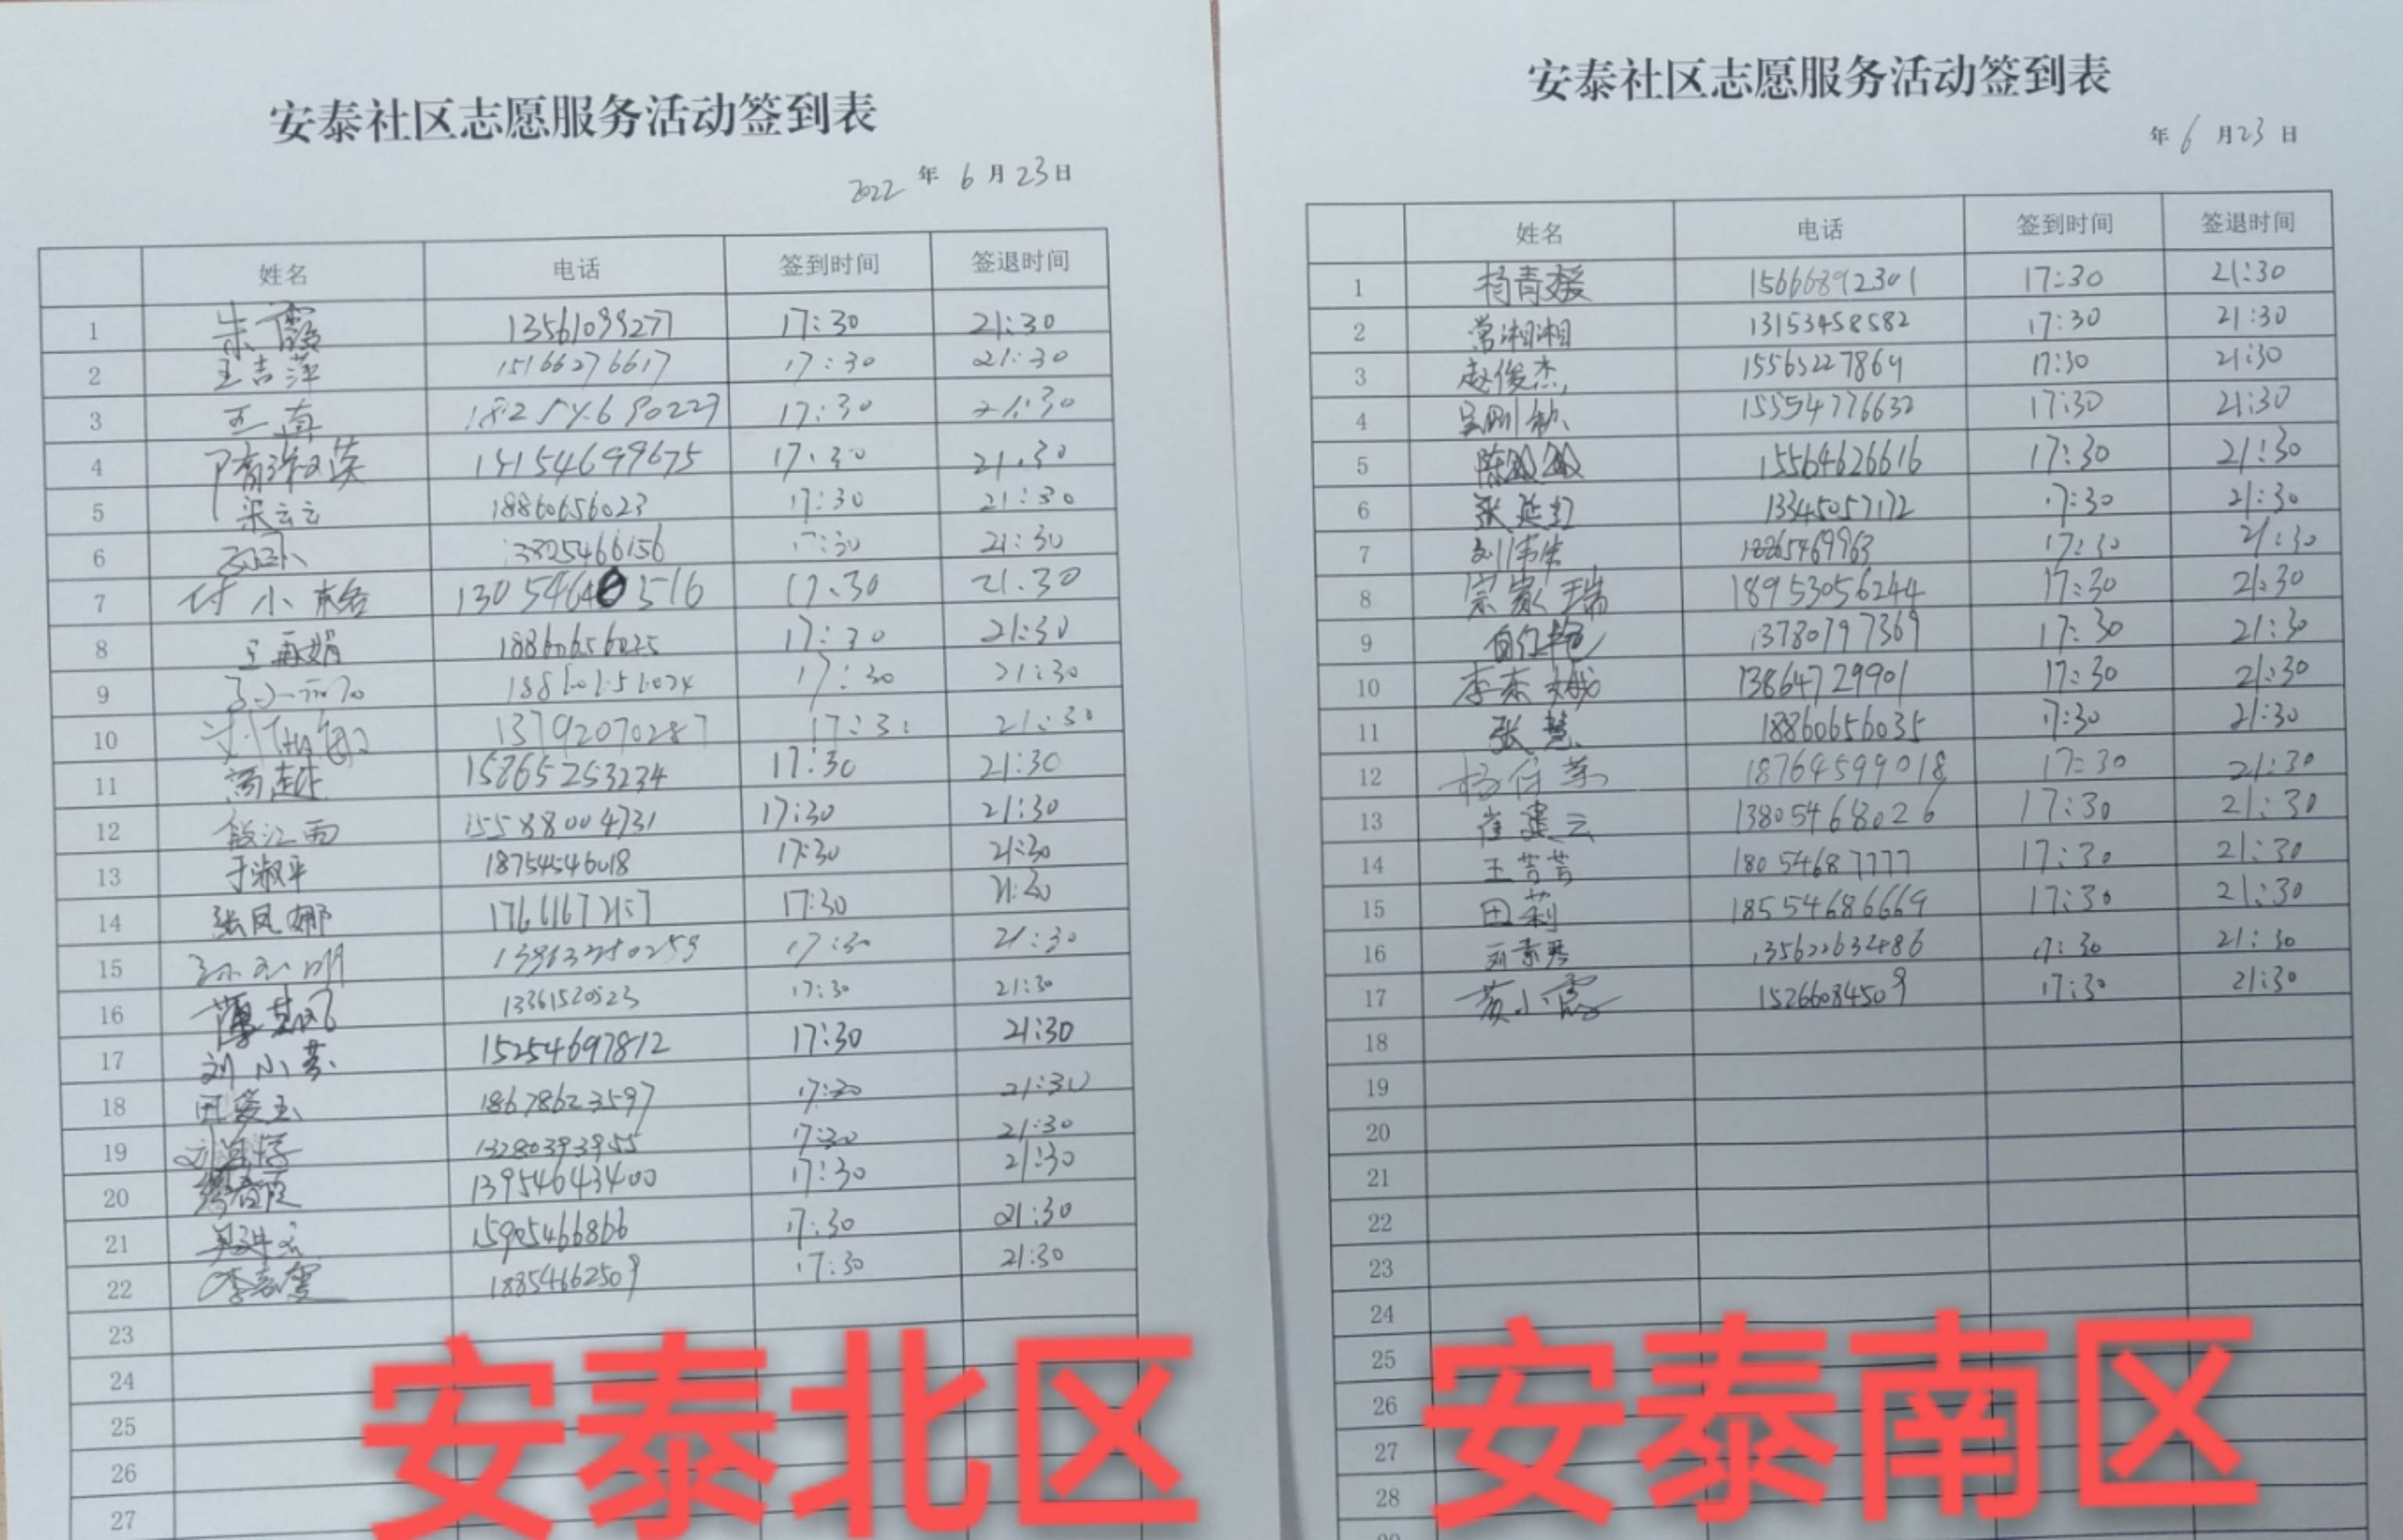 安泰社区志愿服务活动签到表
2022 年 6 月 23 日
姓名 电话 签到时间 签退时间
1 朱霞 13561099277 17:30 21:30
2 王吉萍 15166276617 17:30 21:30
3 17:30 21:30
4 17:30 21:30
5 梁云云 18860656023 17:30 21:30
6 17:30 21:30
7 付小 17:30 21:30
8 王再娟 18860656025 17:30 21:30
9 17:30 21:30
10 13792070287 21:30
11 15865253234 17:30 21:30
12 15588004731 17:30 21:30
13 于淑平 18754546018 17:30 21:30
14 张凤娜 17:30 21:30
15 17:30 21:30
16 薄其凤 17:30 21:30
17 刘小芬 15254697812 17:30 21:30
18 田爱玉 18678623597 17:30 21:30
19 13280393955 17:30 21:30
20 13954643400 17:30 21:30
21 15905466866 17:30 21:30
22 18854662509 17:30 21:30
23
24
25
26
27
安泰北区
安泰社区志愿服务活动签到表
年 6 月 23 日
姓名 电话 签到时间 签退时间
1 杨青媛 15666892301 17:30 21:30
2 常湘湘 13153458582 17:30 21:30
3 赵俊杰 15563227864 17:30 21:30
4 15554776632 17:30 21:30
5 15564626616 17:30 21:30
6 张延红 13345057172 17:30 21:30
7 刘伟生 17:30 21:30
8 宗家瑞 18953056244 17:30 21:30
9 13780797369 17:30 21:30
10 李东娥 13864729901 17:30 21:30
11 张慧 18860656035 17:30 21:30
12 18764599018 17:30 21:30
13 崔建云 13805468026 17:30 21:30
14 王芳芳 18054687777 17:30 21:30
15 田莉 18554686669 17:30 21:30
16 刘素琴 13562263486 17:30 21:30
17 黄小霞 15266084509 17:30 21:30
18
19
20
21
22
23
24
25
26
27
28
安泰南区